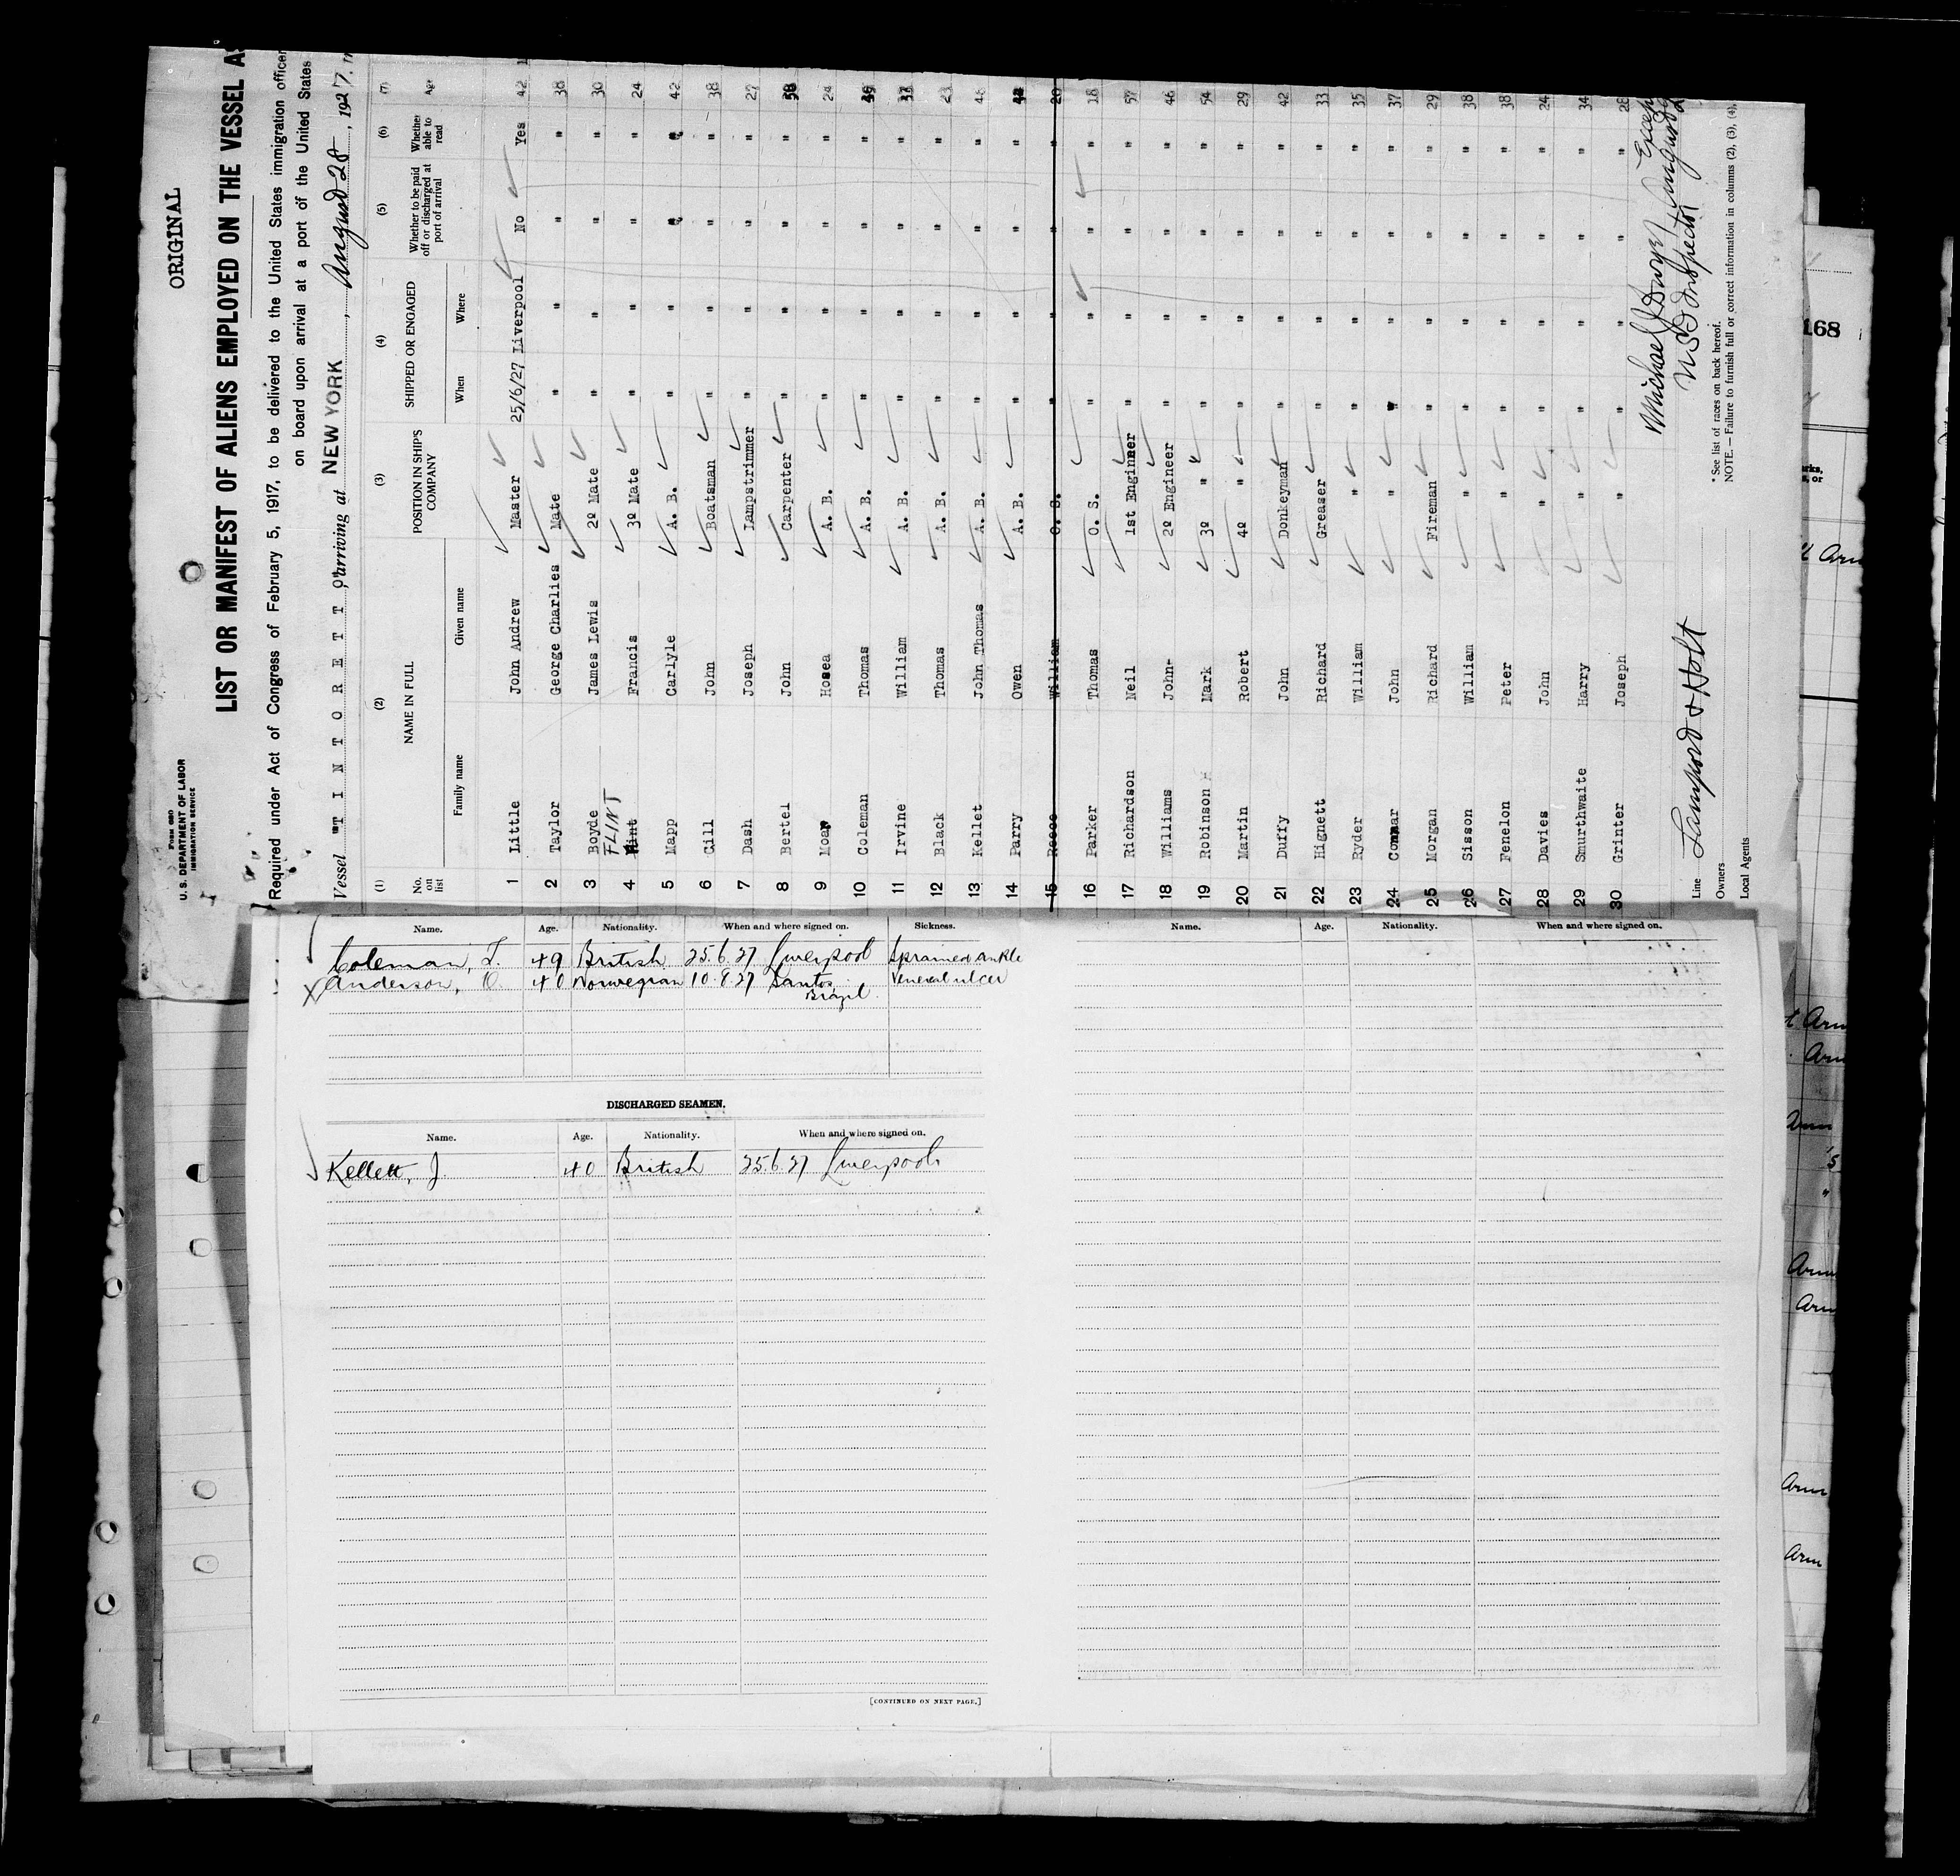 ORIGINAL
U. S. DEPARTMENT OF LABOR
IMMIGRATION SERVICE
LIST OR MANIFEST OF ALIENS EMPLOYED ON THE VESSEL A
Required under Act of Congress of February 5, 1917, to be delivered to the United States immigration officer
on board upon arrival at a port of the United States
Vessel "T I N T O R E T T O", arriving at NEW YORK, August 28, 1927,
(1) (2) (3) (4) (5) (6) (7)
No. on list NAME IN FULL POSITION IN SHIP'S COMPANY SHIPPED OR ENGAGED Whether to be paid off or discharged at port of arrival Whether able to read Age
Family name Given name When Where
1 Little John Andrew Master 25/6/27 Liverpool No Yes 42
2 Taylor George Charlies Mate " " " " 38
3 Boyde James Lewis 2º Mate " " " " 30
4 FLINT Francis 3º Mate " " " " 24
5 Mapp Carlyle A. B. " " " " 42
6 Gill John Boatsman " " " " 38
7 Dash Joseph Lampstrimmer " " " " 27
8 Bertel John Carpenter " " " "
9 Hosea A. B. " " " " 24
10 Coleman Thomas A. B. " " " "
11 Irvine William A. B. " " " "
12 Black Thomas A. B. " " " " 23
13 Kellet John Thomas A. B. " " " "
14 Parry Owen A. B. " " " "
15 Reece William O. S. " " " " 20
16 Parker Thomas O. S. " " " " 18
17 Richardson Neil 1st Engineer " " " " 57
18 Williams John- 2º Engineer " " " " 46
19 Robinson Mark 3º " " " " " 54
20 Martin Robert 4º " " " " " 29
21 Duffy John Donkeyman " " " " 42
22 Hignett Richard Greaser " " " " 33
23 Ryder William " " " " " 35
24 Connar John " " " " " 37
25 Morgan Richard Fireman " " " " 29
26 Sisson William " " " " " 38
27 Fenelon Peter " " " " " 38
28 Davies John " " " " " 24
29 Smurthwaite Harry " " " " " 34
30 Grinter Joseph " " " " " 28
Line Lamport & Holt
Owners
Local Agents
Michael J Dwyer
U S Inspector August
* See list of races on back hereof.
NOTE.—Failure to furnish full or correct information in columns (2), (3), (4),
168
Name. Age. Nationality. When and where signed on. Sickness.
Coleman, T. 49 British 25.6.27 Liverpool Sprained ankle
Anderson, O. 40 Norwegian 10.8.27 Santos Brazil Venereal ulcer
DISCHARGED SEAMEN.
Name. Age. Nationality. When and where signed on.
Kellett, J 40 British 25.6.27 Liverpool
[CONTINUED ON NEXT PAGE.]
Name. Age. Nationality. When and where signed on.